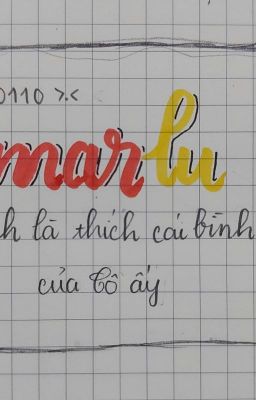 0110 >.<
marlu
h là thích cái bình
của cô ấy